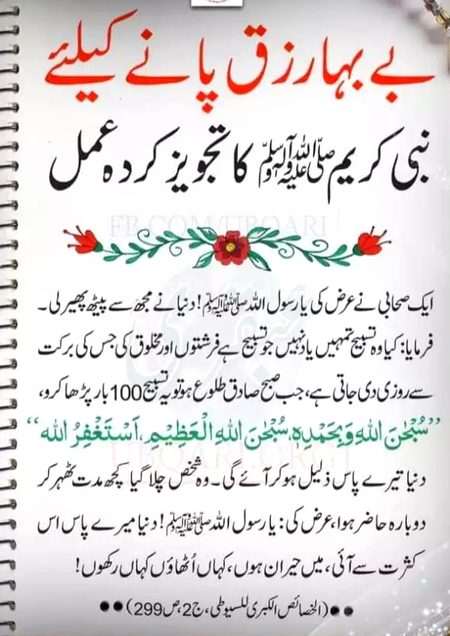 بے بہا رزق پانے کیلئے
نبی کریم ﷺ کا تجویز کردہ عمل
FB.COM/UBQARI
ایک صحابی نے عرض کی یا رسول اللہ ﷺ! دنیا نے مجھ سے پیٹھ پھیر لی۔
فرمایا: کیا وہ تسبیح تمہیں یاد نہیں جو تسبیح ہے فرشتوں اور مخلوق کی جس کی برکت
سے روزی دی جاتی ہے، جب صبح صادق طلوع ہو تو یہ تسبیح 100 بار پڑھا کرو،
”سُبْحٰنَ اللهِ وَبِحَمْدِهٖ، سُبْحٰنَ اللهِ الْعَظِيْمِ، اَسْتَغْفِرُ الله“
UBQARI.ORG
دنیا تیرے پاس ذلیل ہو کر آئے گی۔ وہ شخص چلا گیا کچھ مدت ٹھہر کر
دوبارہ حاضر ہوا، عرض کی: یا رسول اللہ ﷺ! دنیا میرے پاس اس
کثرت سے آئی، میں حیران ہوں، کہاں اُٹھاؤں کہاں رکھوں!
●● (الخصائص الکبریٰ للسیوطی، ج2، ص299) ●●